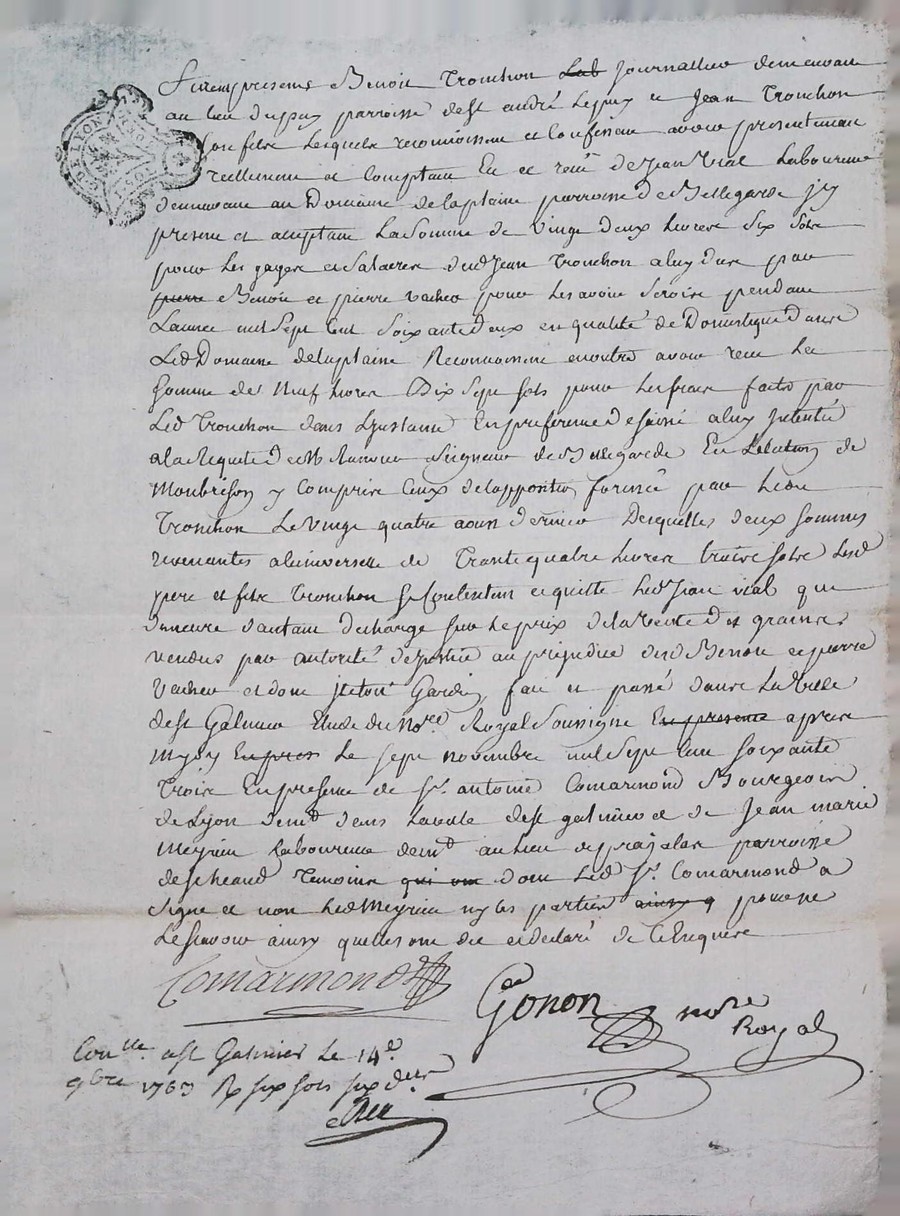 Furent presents Benoit Tronchon Lab Journallier demeurant
au lieu du puy parroisse de st andré Le puy et Jean Tronchon
son fils Lesquels reconnoissent et Confessent avoir presentement
reellement et Comptant Eu et receu de Jean Vial Laboureur
demeurant au Domaine de la plaine parroisse de Bellegarde jcy
present et acceptant La Somme de Vingt deux Livres Six Sols
pour Les gages et Salaires dud Jean Tronchon a luy dus par
pierre Benoit et pierre Vacher pour Les avoir Servis pendant
L'année mil Sept Cent Soixante deux en qualité de Domestique dans
Led Domaine de la plaine Reconnoissent en outre avoir receu La
Somme de Neuf Livres Dix Sept Sols pour Les frais faits par
Led Tronchon dans L'instance En preference de saisie a luy Intentée
a la Requete de M Seigneur de Bellegarde En L'election de
Montbrison y Compris Ceux de l'opposition formée par Led
Tronchon Le Vingt quatre aoust dernier Desquelles deux sommes
revenantes a L'universelle de Trante quatre Livres trois sols Lesd
pere et fils Tronchon Se Contentent et quitte Led Jean vial qui
demeure d'autant dechargé Sur Le prix de la Vente des graines
vendus par autorité de justice au préjudice desd Benoit et pierre
Vacher et dont Gardien fait et passé dans La Ville
de st Galmier Etude du Nore Royal Soussigné En presence apres
Mydy En pres Le sept novembre mil Sept Cent soixante
Trois En presence de Sr antoine Comarmond Bourgeois
de Lyon demt dans La ville de st galmier et de Jean marie
Meyrieu Laboureur demt au lieu de parroisse
de Temoins qui ont dont Led Sr Comarmond a
Signé et non Led Meyrieu ny Les parties ainsy q pour ne
Le Scavoir ainsy quelles ont dit et declaré de Ce Enquis
Comarmond
Gonon nore
Royal
Conlle a st Galmier Le 14e
9bre 1763 R six sols six ders